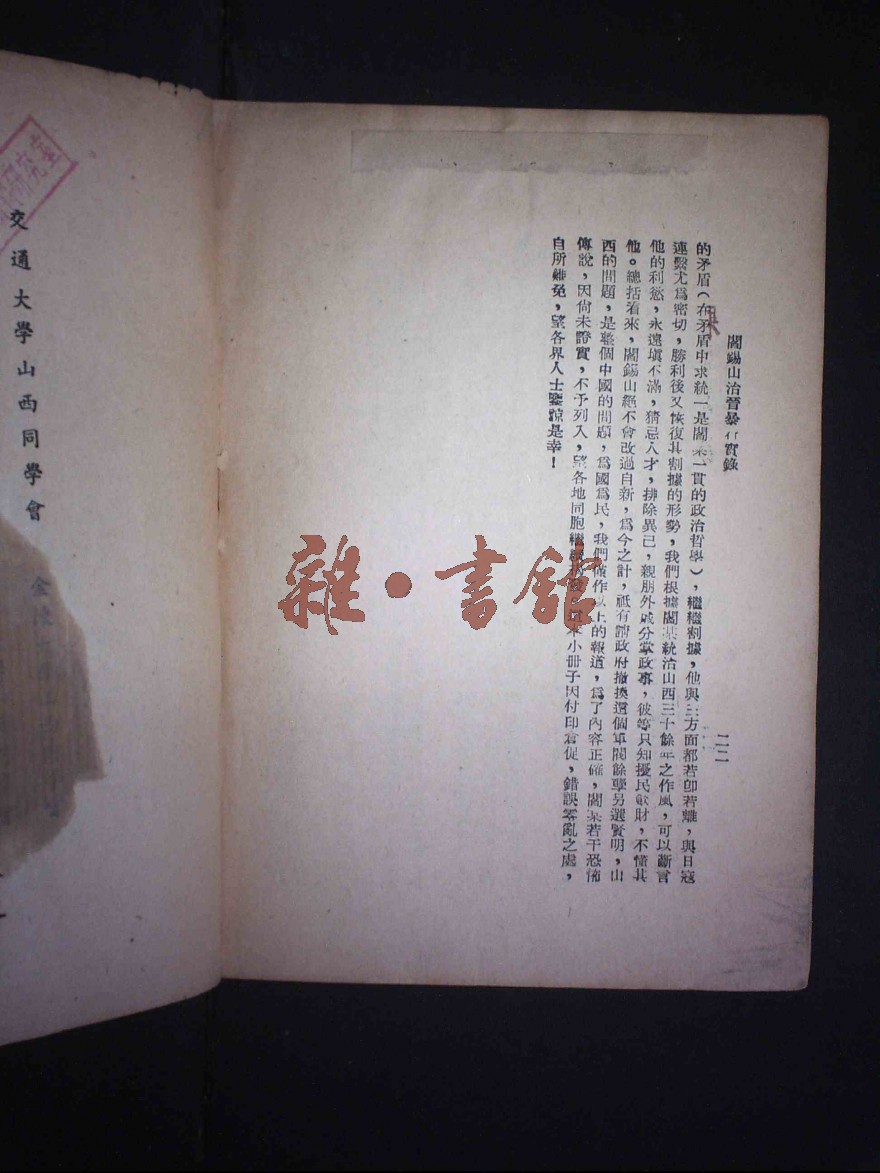 閻錫山治晉暴行實錄
二二
的矛盾(在矛盾中求統一是閻某一貫的政治哲學),繼繼割據,他與三方面都若卽若離,與日寇
連繫尤爲密切,勝利後又恢復其割據的形勢,我們根據閻某統治山西三十餘年之作風,可以斷言
他的利慾,永遠塡不滿,猜忌人才,排除異己,親朋外戚分掌政事,彼等只知擾民歛財,不懂其
他。總括看來,閻錫山絕不會改過自新,爲今之計,祗有請政府撤換這個軍閥餘孽另選賢明,山
西的問題,是整個中國的問題,爲國爲民,我們僅作以上的報道,爲了內容正確,閻某若干恐怖
傳說,因尙未證實,不予列入,望各地同胞繼續小册子因付印倉促,錯誤零亂之處,
自所難免,望各界人士鑒諒是幸!
交通大學山西同學會
雜·書館